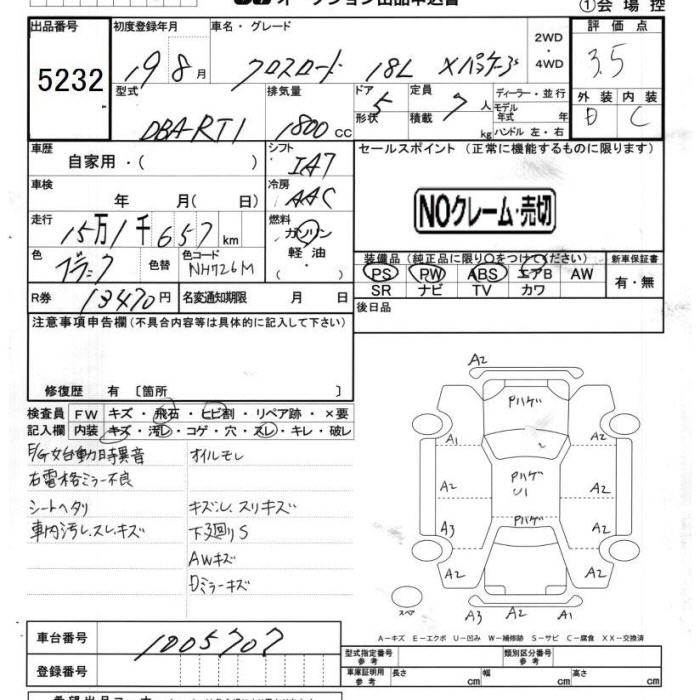 オークション出品申込書
①会場控
出品番号 初度登録年月 車名・グレード 2WD・4WD 評価点
5232 19年8月 クロスロード 18L Xパッケージ 3.5
型式 排気量 ドア形状 5 定員 7人 積載 kg ディーラー・並行 モデル年式 年 ハンドル 左・右 外装 内装
DBA-RT1 1800cc D C
車歴 自家用・( ) シフト IA7 セールスポイント (正常に機能するものに限ります)
車検 年 月( 日) 冷房 AAC
NOクレーム・売切
走行 15万1千657km 燃料 ガソリン 軽油・( )
色 ブラック 色替 色コード NH726M
装備品(純正品に限り○をつけてください) 新車保証書
PS PW ABS エアB AW 有・無
SR ナビ TV カワ
R券 13470円 名変通知期限 月 日 後日品
注意事項申告欄(不具合内容等は具体的に記入して下さい)
修復歴 有 〔箇所 〕
検査員 FW キズ・飛石・ヒビ割・リペア跡・×要
記入欄 内装 キズ・汚レ・コゲ・穴・スレ・キレ・破レ
E/G始動時異音 オイルモレ
右電格ミラー不良
シートヘタリ キズ・レ、スリキズ
車内汚レ、スレ、キズ 下廻りS
AWキズ
Dミラーキズ
A2
Pハゲ
A1 A2
A2 Pハゲ U1 A2
A3 Pハゲ
A2 A2
スペア A3 A2 A1
A-キズ E-エクボ U-凹み W-補修跡 S-サビ C-腐食 XX-交換済
車台番号 1005707
登録番号
型式指定番号 参考 類別区分番号 参考
車庫証明用 参考 長さ 幅 高さ cm cm cm